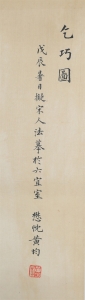 乞巧圖
戊辰暑日擬宋人法摹於六宜室
懋忱黃均